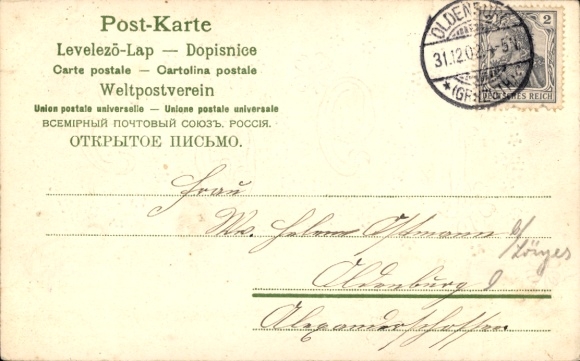 Post-Karte
Levelezõ-Lap — Dopisnice
Carte postale — Cartolina postale
Weltpostverein
Union postale universelle — Unione postale universale
ВСЕМІРНЫЙ ПОЧТОВЫЙ СОЮЗЪ. РОССІЯ.
ОТКРЫТОЕ ПИСЬМО.
OLDENBURG
31.12.02
*(GR
2
DEUTSCHES REICH
Frau
Ww. Helene Ostmann
Oldenburg